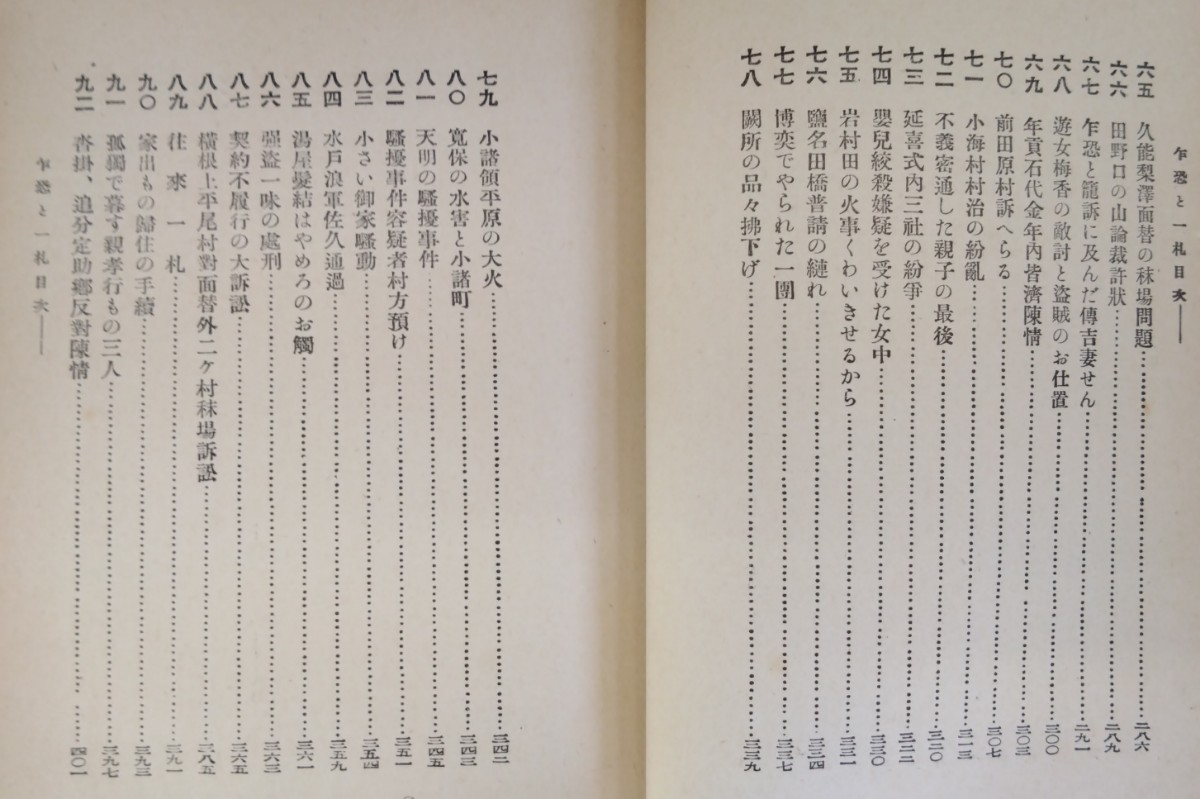 乍恐と一札目次
六五 久能梨澤面替の秣場問題……二八六
六六 田野口の山論裁許狀……二八九
六七 乍恐と籠訴に及んだ傳吉妻せん……二九一
六八 遊女梅香の敵討と盜賊のお仕置……三〇〇
六九 年貢石代金年內皆濟陳情……三〇三
七〇 前田原村訴へらる……三〇七
七一 小海村村治の紛亂……三一三
七二 不義密通した親子の最後……三二〇
七三 延喜式內三社の紛爭……三二二
七四 嬰兒絞殺嫌疑を受けた女中……三三〇
七五 岩村田の火事くわいさせるから……三三一
七六 鹽名田橋普請の縺れ……三三四
七七 博奕でやられた一團……三三七
七八 闕所の品々拂下げ……三三九
七九 小諸領平原の大火……三四二
八〇 寬保の水害と小諸町……三四三
八一 天明の騷擾事件……三四五
八二 騷擾事件容疑者村方預け……三五一
八三 小さい御家騷動……三五四
八四 水戶浪軍佐久通過……三五九
八五 湯屋髮結はやめろのお觸……三六一
八六 强盜一味の處刑……三六三
八七 契約不履行の大訴訟……三六五
八八 橫根上平尾村對面替外二ヶ村秣場訴訟……三八五
八九 往來一札……三九一
九〇 家出もの歸住の手續……三九三
九一 孤獨で暮す親孝行もの三人……三九七
九二 沓掛、追分定助鄕反對陳情……四〇一
乍恐と一札目次